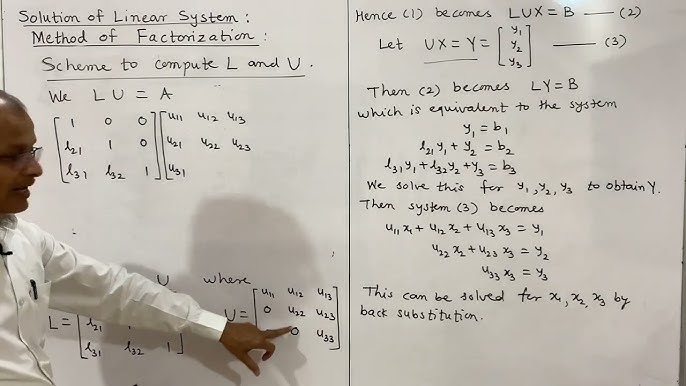 Solution of Linear System :
Method of Factorization :
Scheme to compute L and U .
We L U = A
[1 0 0] [u11 u12 u13]
[l21 1 0] [u21 u22 u23]
[l31 l32 1] [u31
U where
L = [l21 1
[l31 l32 1]
U = [u11 u12 u13]
[0 u22 u23]
[0 u33]
Hence (1) becomes LUX = B — (2)
Let UX = Y = [y1 y2 y3] — (3)
Then (2) becomes LY = B
which is equivalent to the system
y1 = b1
l21 y1 + y2 = b2
l31 y1 + l32 y2 + y3 = b3
We solve this for y1, y2, y3 to obtain Y.
Then system (3) becomes
u11 x1 + u12 x2 + u13 x3 = y1
u22 x2 + u23 x3 = y2
u33 x3 = y3
This can be solved for x1, x2, x3 by
back substitution.